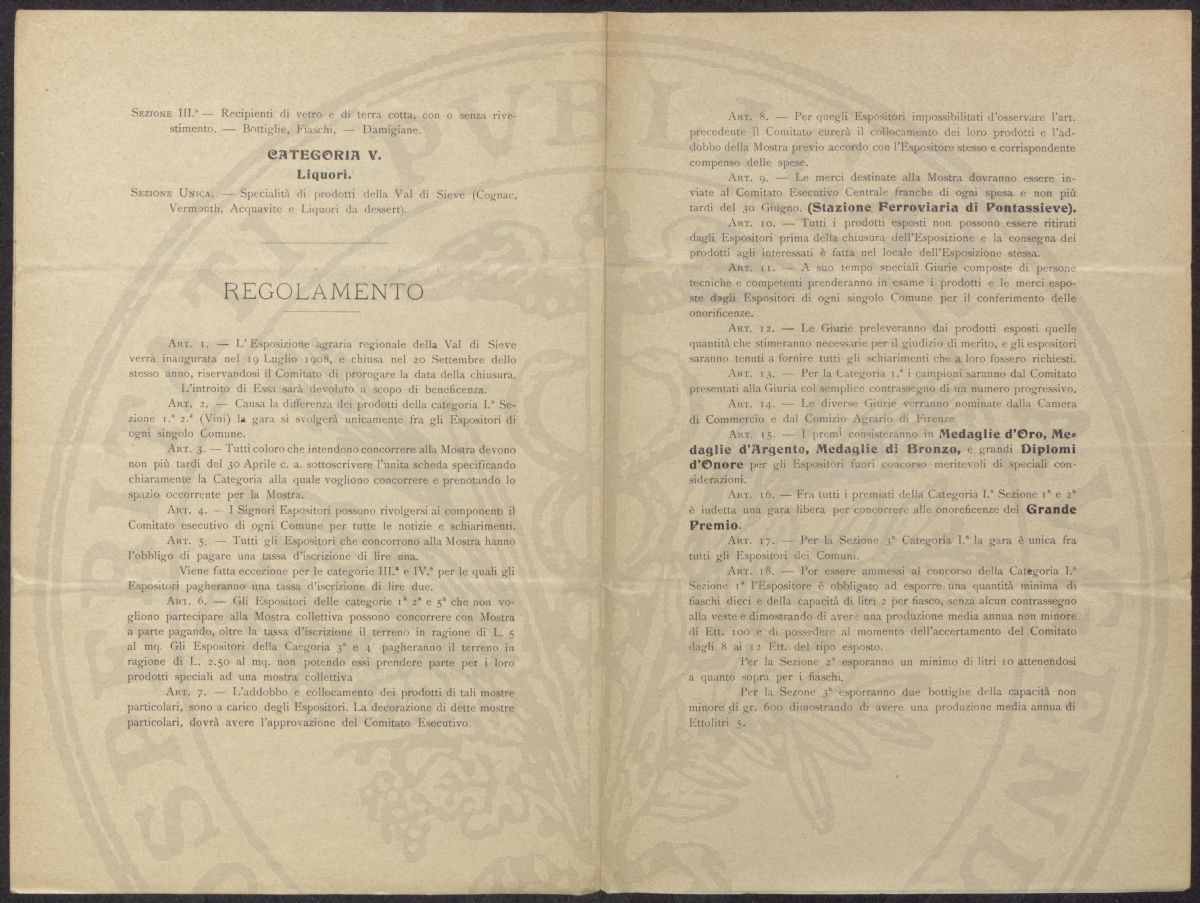 Sezione III.ª — Recipienti di vetro e di terra cotta, con o senza rive-
stimento. — Bottiglie, Fiaschi, — Damigiane.
CATEGORIA V.
Liquori.
Sezione Unica. — Specialità di prodotti della Val di Sieve (Cognac,
Vermouth, Acquavite e Liquori da dessert).
REGOLAMENTO
Art. 1. — L'Esposizione agraria regionale della Val di Sieve
verrà inaugurata nel 19 Luglio 1908, e chiusa nel 20 Settembre dello
stesso anno, riservandosi il Comitato di prorogare la data della chiusura.
L'introito di Essa sarà devoluto a scopo di beneficenza.
Art. 2. — Causa la differenza dei prodotti della categoria I.ª Se-
zione 1.ª 2.ª (Vini) la gara si svolgerà unicamente fra gli Espositori di
ogni singolo Comune.
Art. 3. — Tutti coloro che intendono concorrere alla Mostra devono
non più tardi del 30 Aprile c. a. sottoscrivere l'unita scheda specificando
chiaramente la Categoria alla quale vogliono concorrere e prenotando lo
spazio occorrente per la Mostra.
Art. 4. — I Signori Espositori possono rivolgersi ai componenti il
Comitato esecutivo di ogni Comune per tutte le notizie e schiarimenti.
Art. 5. — Tutti gli Espositori che concorrono alla Mostra hanno
l'obbligo di pagare una tassa d'iscrizione di lire una.
Viene fatta eccezione per le categorie III.ª e IV.ª per le quali gli
Espositori pagheranno una tassa d'iscrizione di lire due.
Art. 6. — Gli Espositori delle categorie 1ª 2ª e 5ª che non vo-
gliono partecipare alla Mostra collettiva possono concorrere con Mostra
a parte pagando, oltre la tassa d'iscrizione il terreno in ragione di L. 5
al mq. Gli Espositori della Caegoria 3ª e 4 pagheranno il terreno in
ragione di L. 2.50 al mq. non potendo essi prendere parte per i loro
prodotti speciali ad una mostra collettiva
Art. 7. — L'addobbo e collocamento dei prodotti di tali mostre
particolari, sono a carico degli Espositori. La decorazione di dette mostre
particolari, dovrà avere l'approvazione del Comitato Esecutivo.
Art. 8. — Per quegli Espositori impossibilitati d'osservare l'art.
precedente il Comitato curerà il collocamento dei loro prodotti e l'ad-
dobbo della Mostra previo accordo con l'Espositore stesso e corrispondente
compenso delle spese.
Art. 9. — Le merci destinate alla Mostra dovranno essere in-
viate al Comitato Esecutivo Centrale franche di ogni spesa e non più
tardi del 30 Giugno. (Stazione Ferroviaria di Pontassieve).
Art. 10. — Tutti i prodotti esposti non possono essere ritirati
dagli Espositori prima della chiusura dell'Esposizione e la consegna dei
prodotti agli interessati è fatta nel locale dell'Esposizione stessa.
Art. 11. — A suo tempo speciali Giurie composte di persone
tecniche e competenti prenderanno in esame i prodotti e le merci espo-
ste dagli Espositori di ogni singolo Comune per il conferimento delle
onorificenze.
Art. 12. — Le Giurie preleveranno dai prodotti esposti quelle
quantità che stimeranno necessarie per il giudizio di merito, e gli espositori
saranno tenuti a fornire tutti gli schiarimenti che a loro fossero richiesti.
Art. 13. — Per la Categoria 1.ª i campioni saranno dal Comitato
presentati alla Giuria col semplice contrassegno di un numero progressivo.
Art. 14. — Le diverse Giurie verranno nominate dalla Camera
di Commercio e dal Comizio Agrario di Firenze.
Art. 15. — I premi consisteranno in Medaglie d'Oro, Me-
daglie d'Argento, Medaglie di Bronzo, e grandi Diplomi
d'Onore per gli Espositori fuori concorso meritevoli di speciali con-
siderazioni.
Art. 16. — Fra tutti i premiati della Categoria I.ª Sezione 1ª e 2ª
è indetta una gara libera per concorrere alle onoreficenze del Grande
Premio.
Art. 17. — Per la Sezione 3ª Categoria I.ª la gara è unica fra
tutti gli Espositori dei Comuni.
Art. 18. — Per essere ammessi al concorso della Categoria I.ª
Sezione 1ª l'Espositore è obbligato ad esporre una quantità minima di
fiaschi dieci e della capacità di litri 2 per fiasco, senza alcun contrassegno
alla veste e dimostrando di avere una produzione media annua non minore
di Ett. 100 e di possedere al momento dell'accertamento del Comitato
dagli 8 ai 12 Ett. del tipo esposto.
Per la Sezione 2ª esporanno un minimo di litri 10 attenendosi
a quanto sopra per i fiaschi.
Per la Sezone 3ª esporranno due bottiglie della capacità non
minore di gr. 600 dimostrando di avere una produzione media annua di
Ettolitri 5.